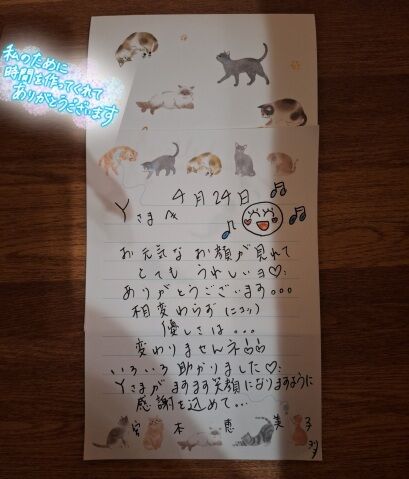 私のために
時間を作ってくれて
ありがとうございます
4月24日
Yさまへ
お元気なお顔が見れて
とてもうれしいヨ♡
ありがとうございます。。。
相変わらず(ニコッ)
優しさは。。。
変わりませんネ
いろいろ助かりました♡
Yさまがますます笑顔になりますように
感謝を込めて...
宮木恵美子